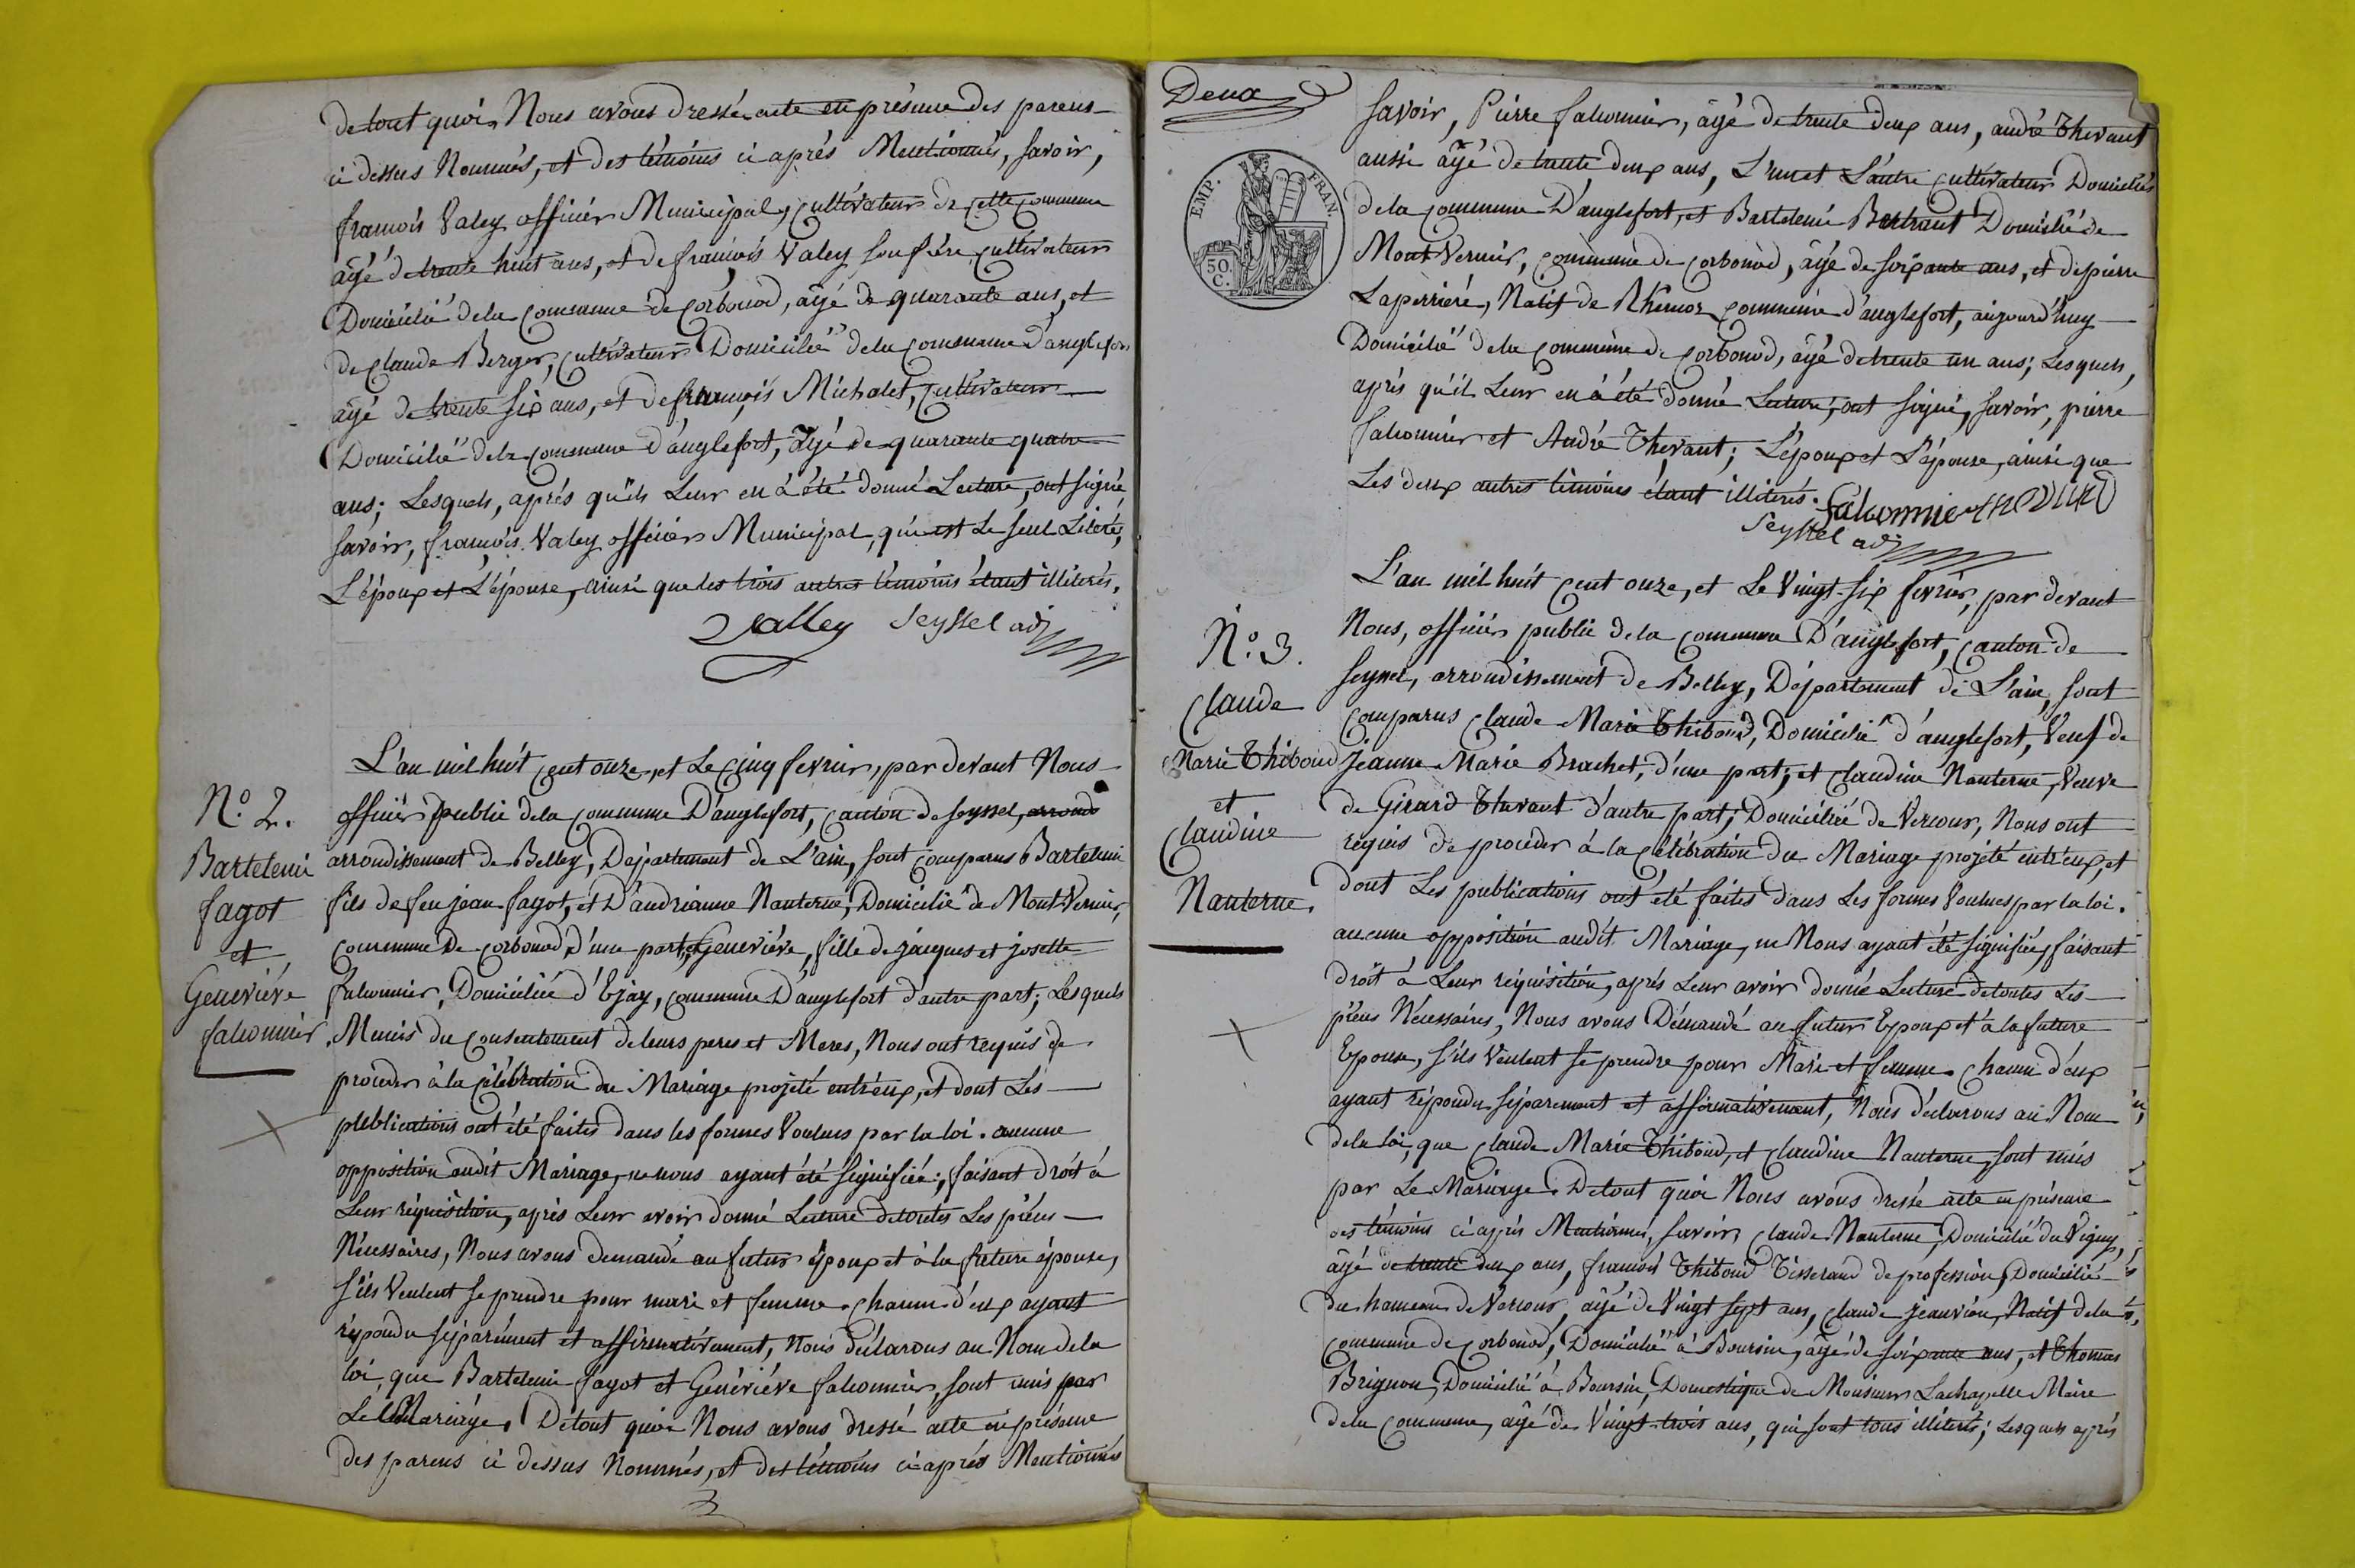 de tout quoi, Nous avons dressé acte en présence des parens
ci dessus Nommés, et des témoins ci aprés Mentionnés, savoir,
francois Valey officier Municipal, cultivateur de cette commune
âgé de trente huit ans, et de francois Valey son frére, cultivateur
Domicilié de la commune de Corbonod, âgé de quarante ans, et
de Claude Berger, cultivateur Domicilié de la commune d'anglefort
âgé de trente six ans, et de francois Michalet, cultivateur
Domicilié de la commune d'anglefort, âgé de quarante quatre
ans; Lesquels, aprés qu'ils Leur en à été donné Lecture, ont signé,
savoir, francois Valey officier Municipal, qui est Le seul Literé,
L'époux et L'épouse, ainsi que les trois autres témoins étant illiterés.
Valley Seyssel adj
N.o 2.
Bartelemi
fagot
et
Geneviéve
falconnier
L'an mil huit cent onze, et Le Cinq fevrier, par devant Nous
officier public de la commune D'anglefort, Canton de seyssel, arrond
arrondissement de Belley, Département de L'ain, sont comparus Bartelemi
fils de feu jean fagot, et D'andrianne Nanterne, Domicilié de Mont-Vernier,
commune de corbonod d'une part, et Geneviéve, fille de jacques et josette
falconnier, Domiciliée d'Ejay, commune D'anglefort d'autre part; Lesquels
Munis du consentement de leurs peres et Meres, Nous ont requis de
procéder à la célébration du Mariage projeté entr'eux, et dont Les
publications ont été faites dans les formes Voulues par la loi. aucune
opposition audit Mariage, ne nous ayant été signifiée; faisant droit à
Leur réquisition, aprés Leur avoir donné Lecture de toutes Les piéces
Nécessaires, Nous avons demandé au futur époux et à la future épouse,
s'ils Veulent se prendre pour mari et femme. chacun d'eux ayant
répondu séparément et affirmativement, Nous déclarons au Nom de la
loi, que Bartelemi fagot et Genéviéve falconnier, sont unis par
Le Mariage. De tout quoi Nous avons dressé acte en présence
des parens ci dessus Nommés, et des témoins ci aprés Mentionnés
Deux
EMP. FRAN.
50. C.
Savoir, Pierre falconnier, âgé de trente deux ans, andré Thevant
aussi âgé de trente deux ans, L'un et L'autre cultivateur Domiciliés
de la commune D'anglefort, et Bartelemi Bertrant Domicilié de
Mont-Vernier, commune de corbonod, âgé de soixante ans, et de pierre
Laperriere, Natif de Rhemoz commune d'anglefort, aujourd'huy
Domicilié de la commune de corbonod, âgé de trente un ans; Lesquels,
aprés qu'il Leur en à été donné Lecture, ont signé, savoir, pierre
falconnier et André Thevant; L'époux et L'épouse, ainsi que
Les deux autres témoins étant illiterés.
falconnier thevant
Seyssel adj
N.o 3.
Claude
Marie Thiboud
et
Claudine
Nanterne.
L'an mil huit cent onze, et Le Vingt-six fevrier, par devant
Nous, officier public de la commune D'anglefort, Canton de
seyssel, arrondissement de Belley, Département de L'ain, sont
comparus Claude Marie Thiboud, Domicilié d'anglefort, Veuf de
Jeanne Marie Brachet, d'une part; et Claudine Nanterne, Veuve
de Girard Thevant d'autre part; Domiciliée de Vercour, Nous ont
requis de procéder à la célébration du Mariage projeté entr'eux, et
dont Les publications ont été faites dans Les formes Voulues par la loi.
aucune opposition audit Mariage, ne Nous ayant été signifiée, faisant
droit à Leur réquisition, aprés Leur avoir donné Lecture de toutes Les
piéces Nécessaires, Nous avons Démandé au futur Epoux et à la future
Epouse, s'ils Veulent se prendre pour Mari et femme. chacun d'eux
ayant répondu séparement et affirmativement, Nous déclarons au Nom
de la loi, que Claude Marie Thiboud, et Claudine Nanterne, sont unis
par Le Mariage. De tout quoi Nous avons dressé acte en présence
des témoins ci aprés Mentionnés, savoir, Claude Nanterne, Domicilié du Vigny,
âgé de trente deux ans, francois Thiboud Tisserand de profession, Domicilié
du hameau de Vercour, âgé de Vingt sept ans, Claude jeanvion, Natif de la
commune de corbonod, Domicilié à Boursin, âgé de soixante ans, et Thomas
Brignon, Domicilié à Boursin, Domestique de Monsieur Lachapelle Maire
de la commune, âgé de Vingt-trois ans, qui sont tous illiterés; Lesquels aprés